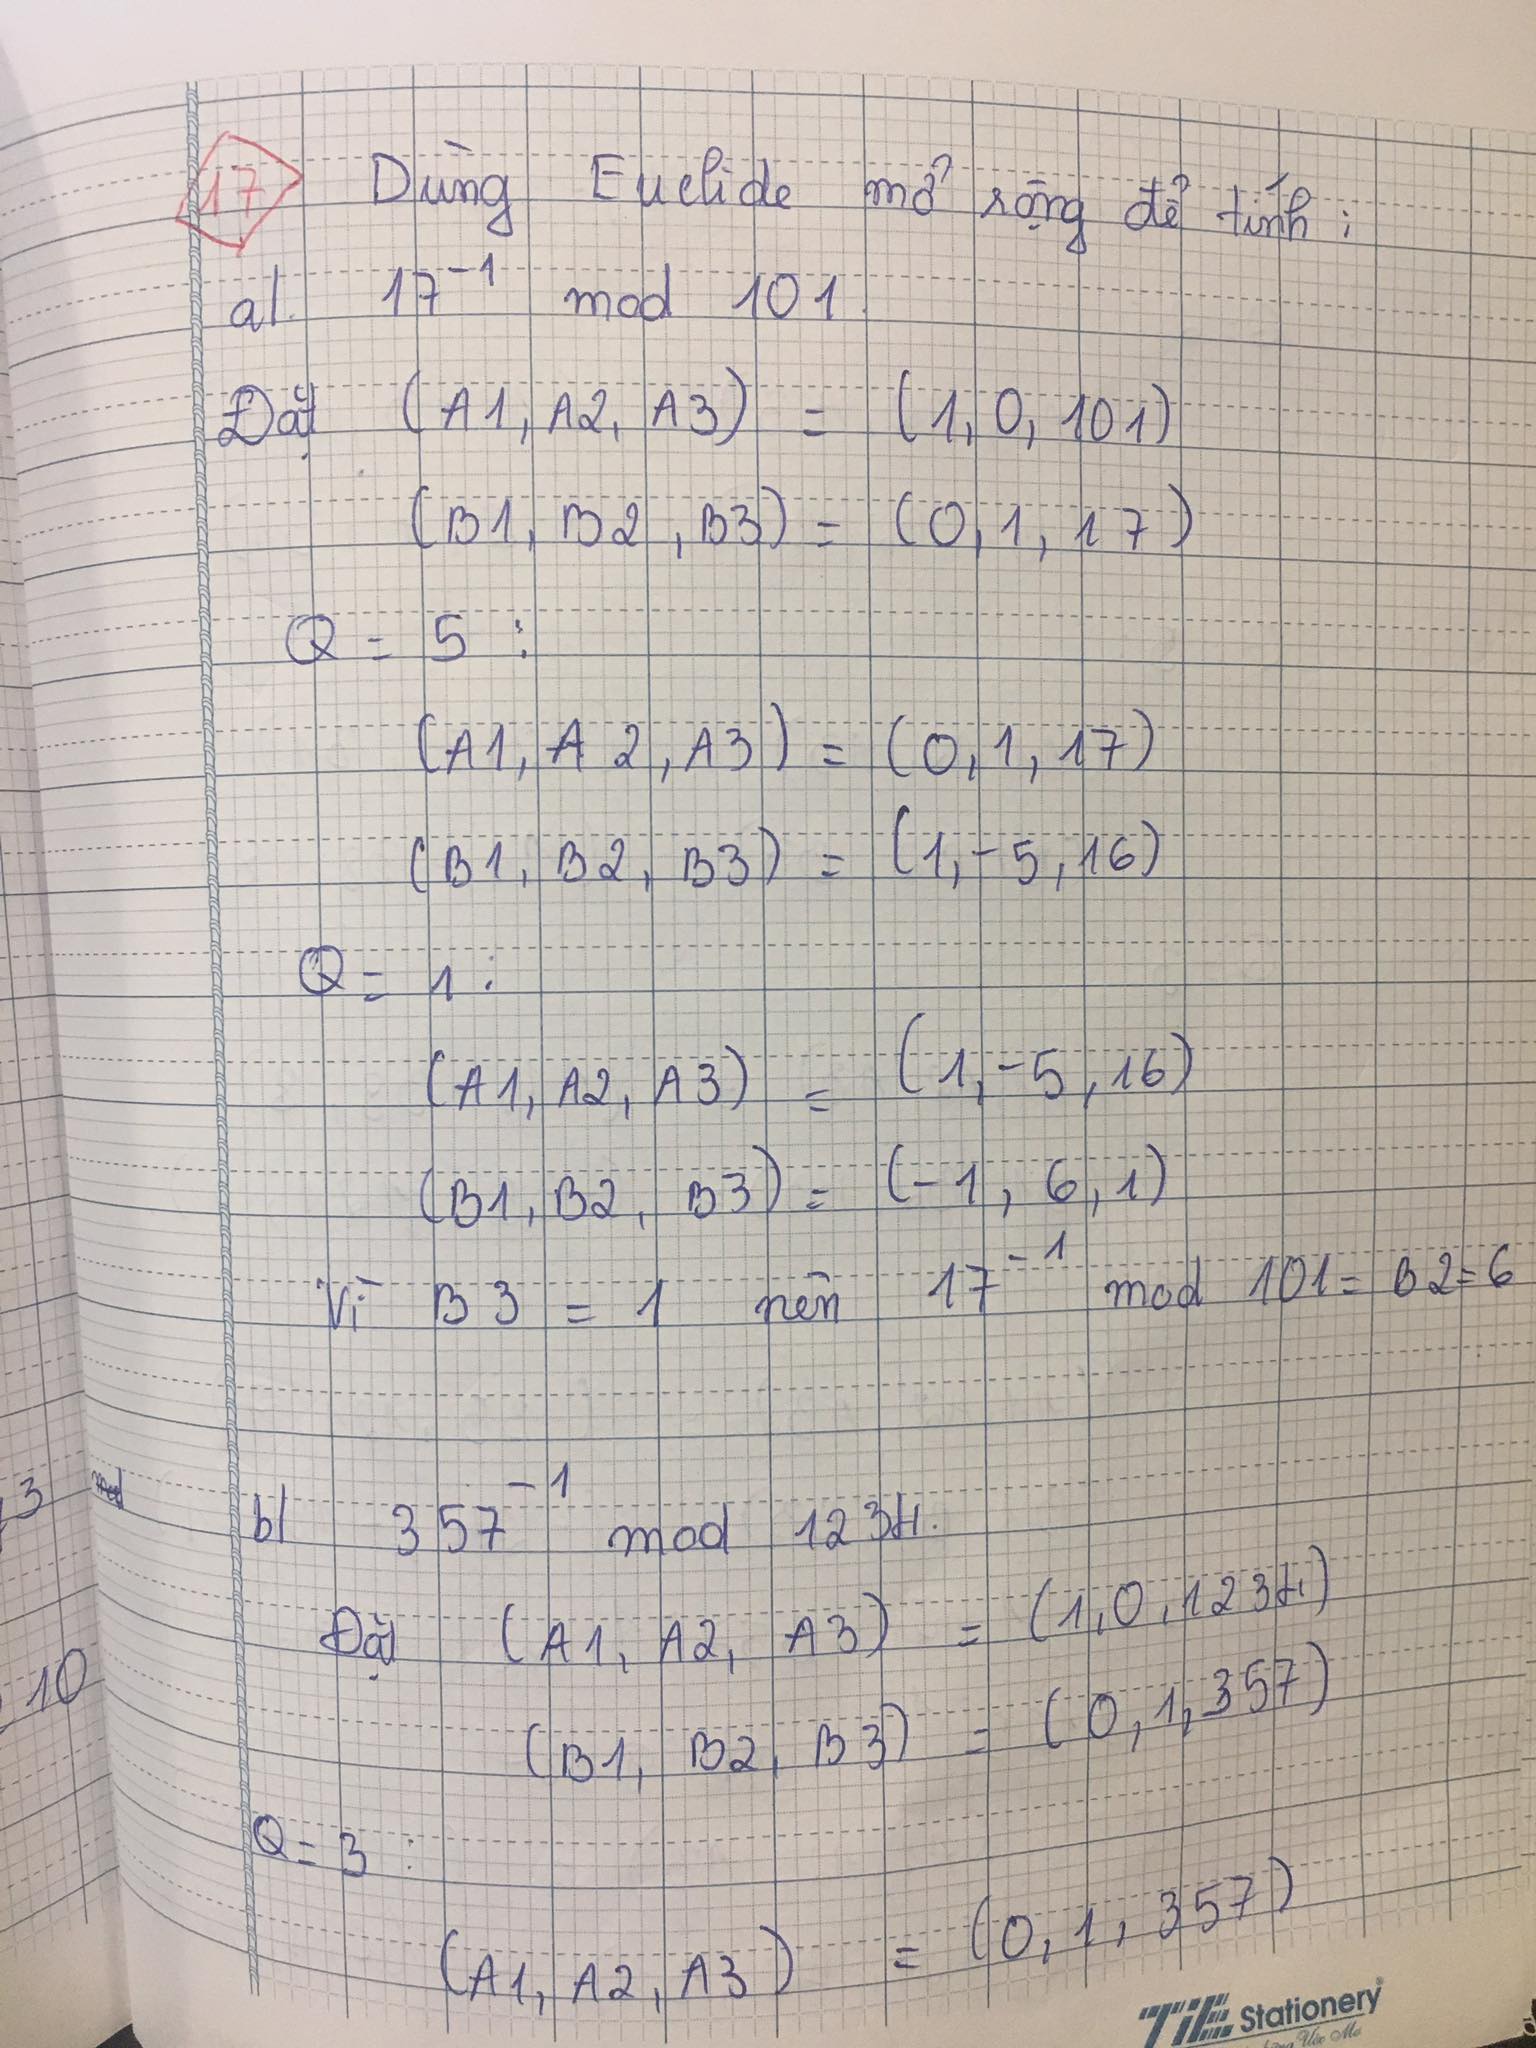 17 Dùng Euclide mở rộng để tính:
a/. 17⁻¹ mod 101.
Đặt (A1, A2, A3) = (1, 0, 101)
(B1, B2, B3) = (0, 1, 17)
Q = 5 :
(A1, A2, A3) = (0, 1, 17)
(B1, B2, B3) = (1, -5, 16)
Q = 1 :
(A1, A2, A3) = (1, -5, 16)
(B1, B2, B3) = (-1, 6, 1)
Vì B3 = 1 nên 17⁻¹ mod 101 = B2 = 6
b/ 357⁻¹ mod 1234.
Đặt (A1, A2, A3) = (1, 0, 1234)
(B1, B2, B3) = (0, 1, 357)
Q = 3 :
(A1, A2, A3) = (0, 1, 357)
3
10
TiE Stationery